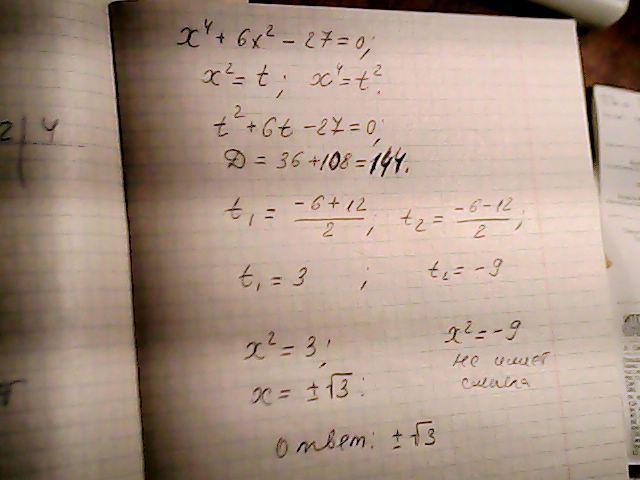 x⁴ + 6x² − 27 = 0;
x² = t; x⁴ = t².
t² + 6t − 27 = 0;
D = 36 + 108 = 144.
t₁ = (−6 + 12)/2; t₂ = (−6 − 12)/2;
t₁ = 3 ; t₂ = −9
x² = 3; x² = −9
не имеет
x = ±√3; смысла
ответ: ±√3
2 | 4